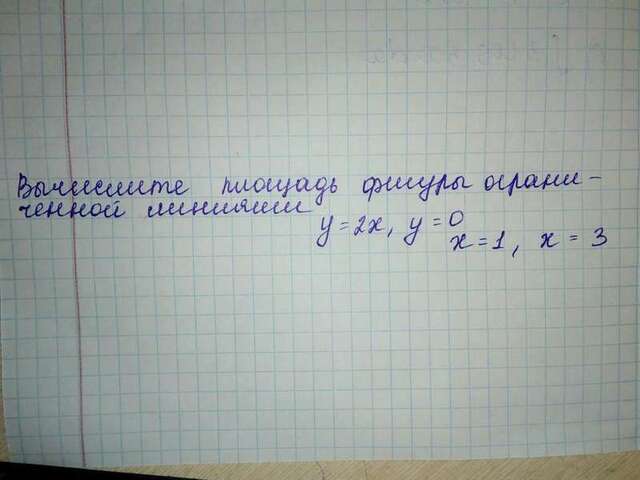 Вычислите площадь фигуры ограни-
ченной линиями
y = 2x, y = 0
x = 1, x = 3